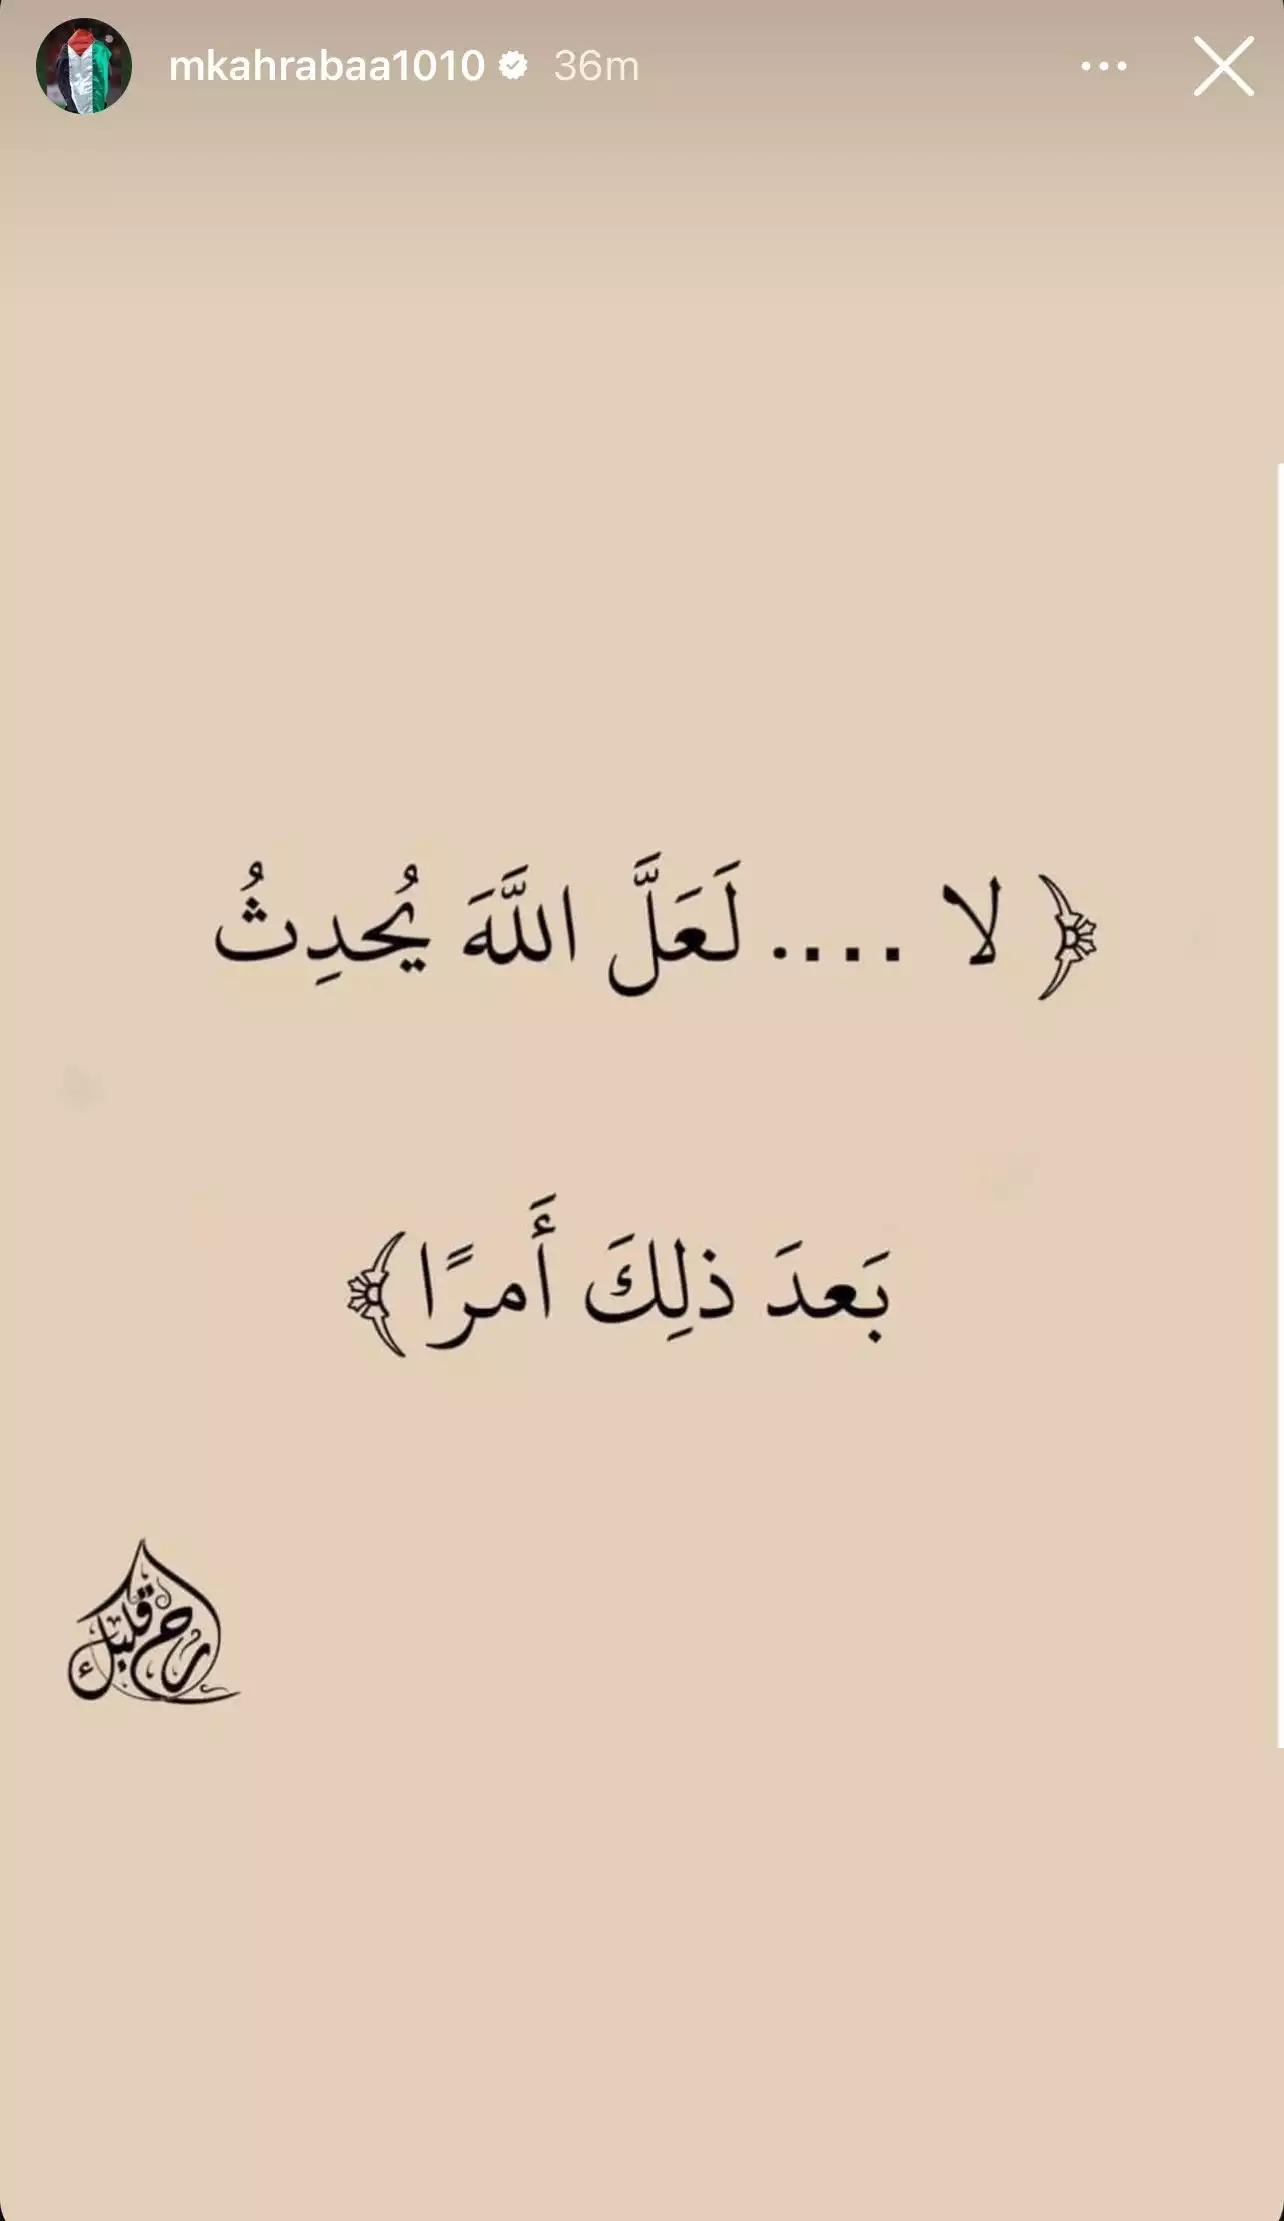 mkahrabaa1010 36m
﴿ لا .... لَعَلَّ اللَّهَ يُحدِثُ
بَعدَ ذلِكَ أَمرًا﴾
ارح قلبك